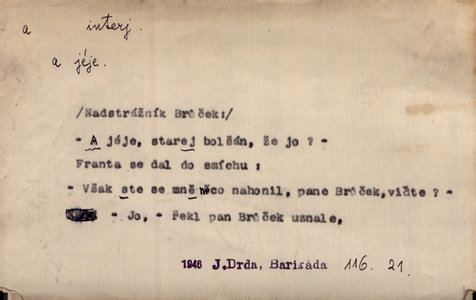 a interj.
a jéje.
/Nadstrážník Brůček:/
- A jéje, starej bolšán, že jo ? -
Franta se dal do smíchu :
- Však ste se mně něco nahonil, pane Brůček,viďte ? -
- Jo, - řekl pan Brůček uznale,
1946 J.Drda, Barikáda 116. 21.